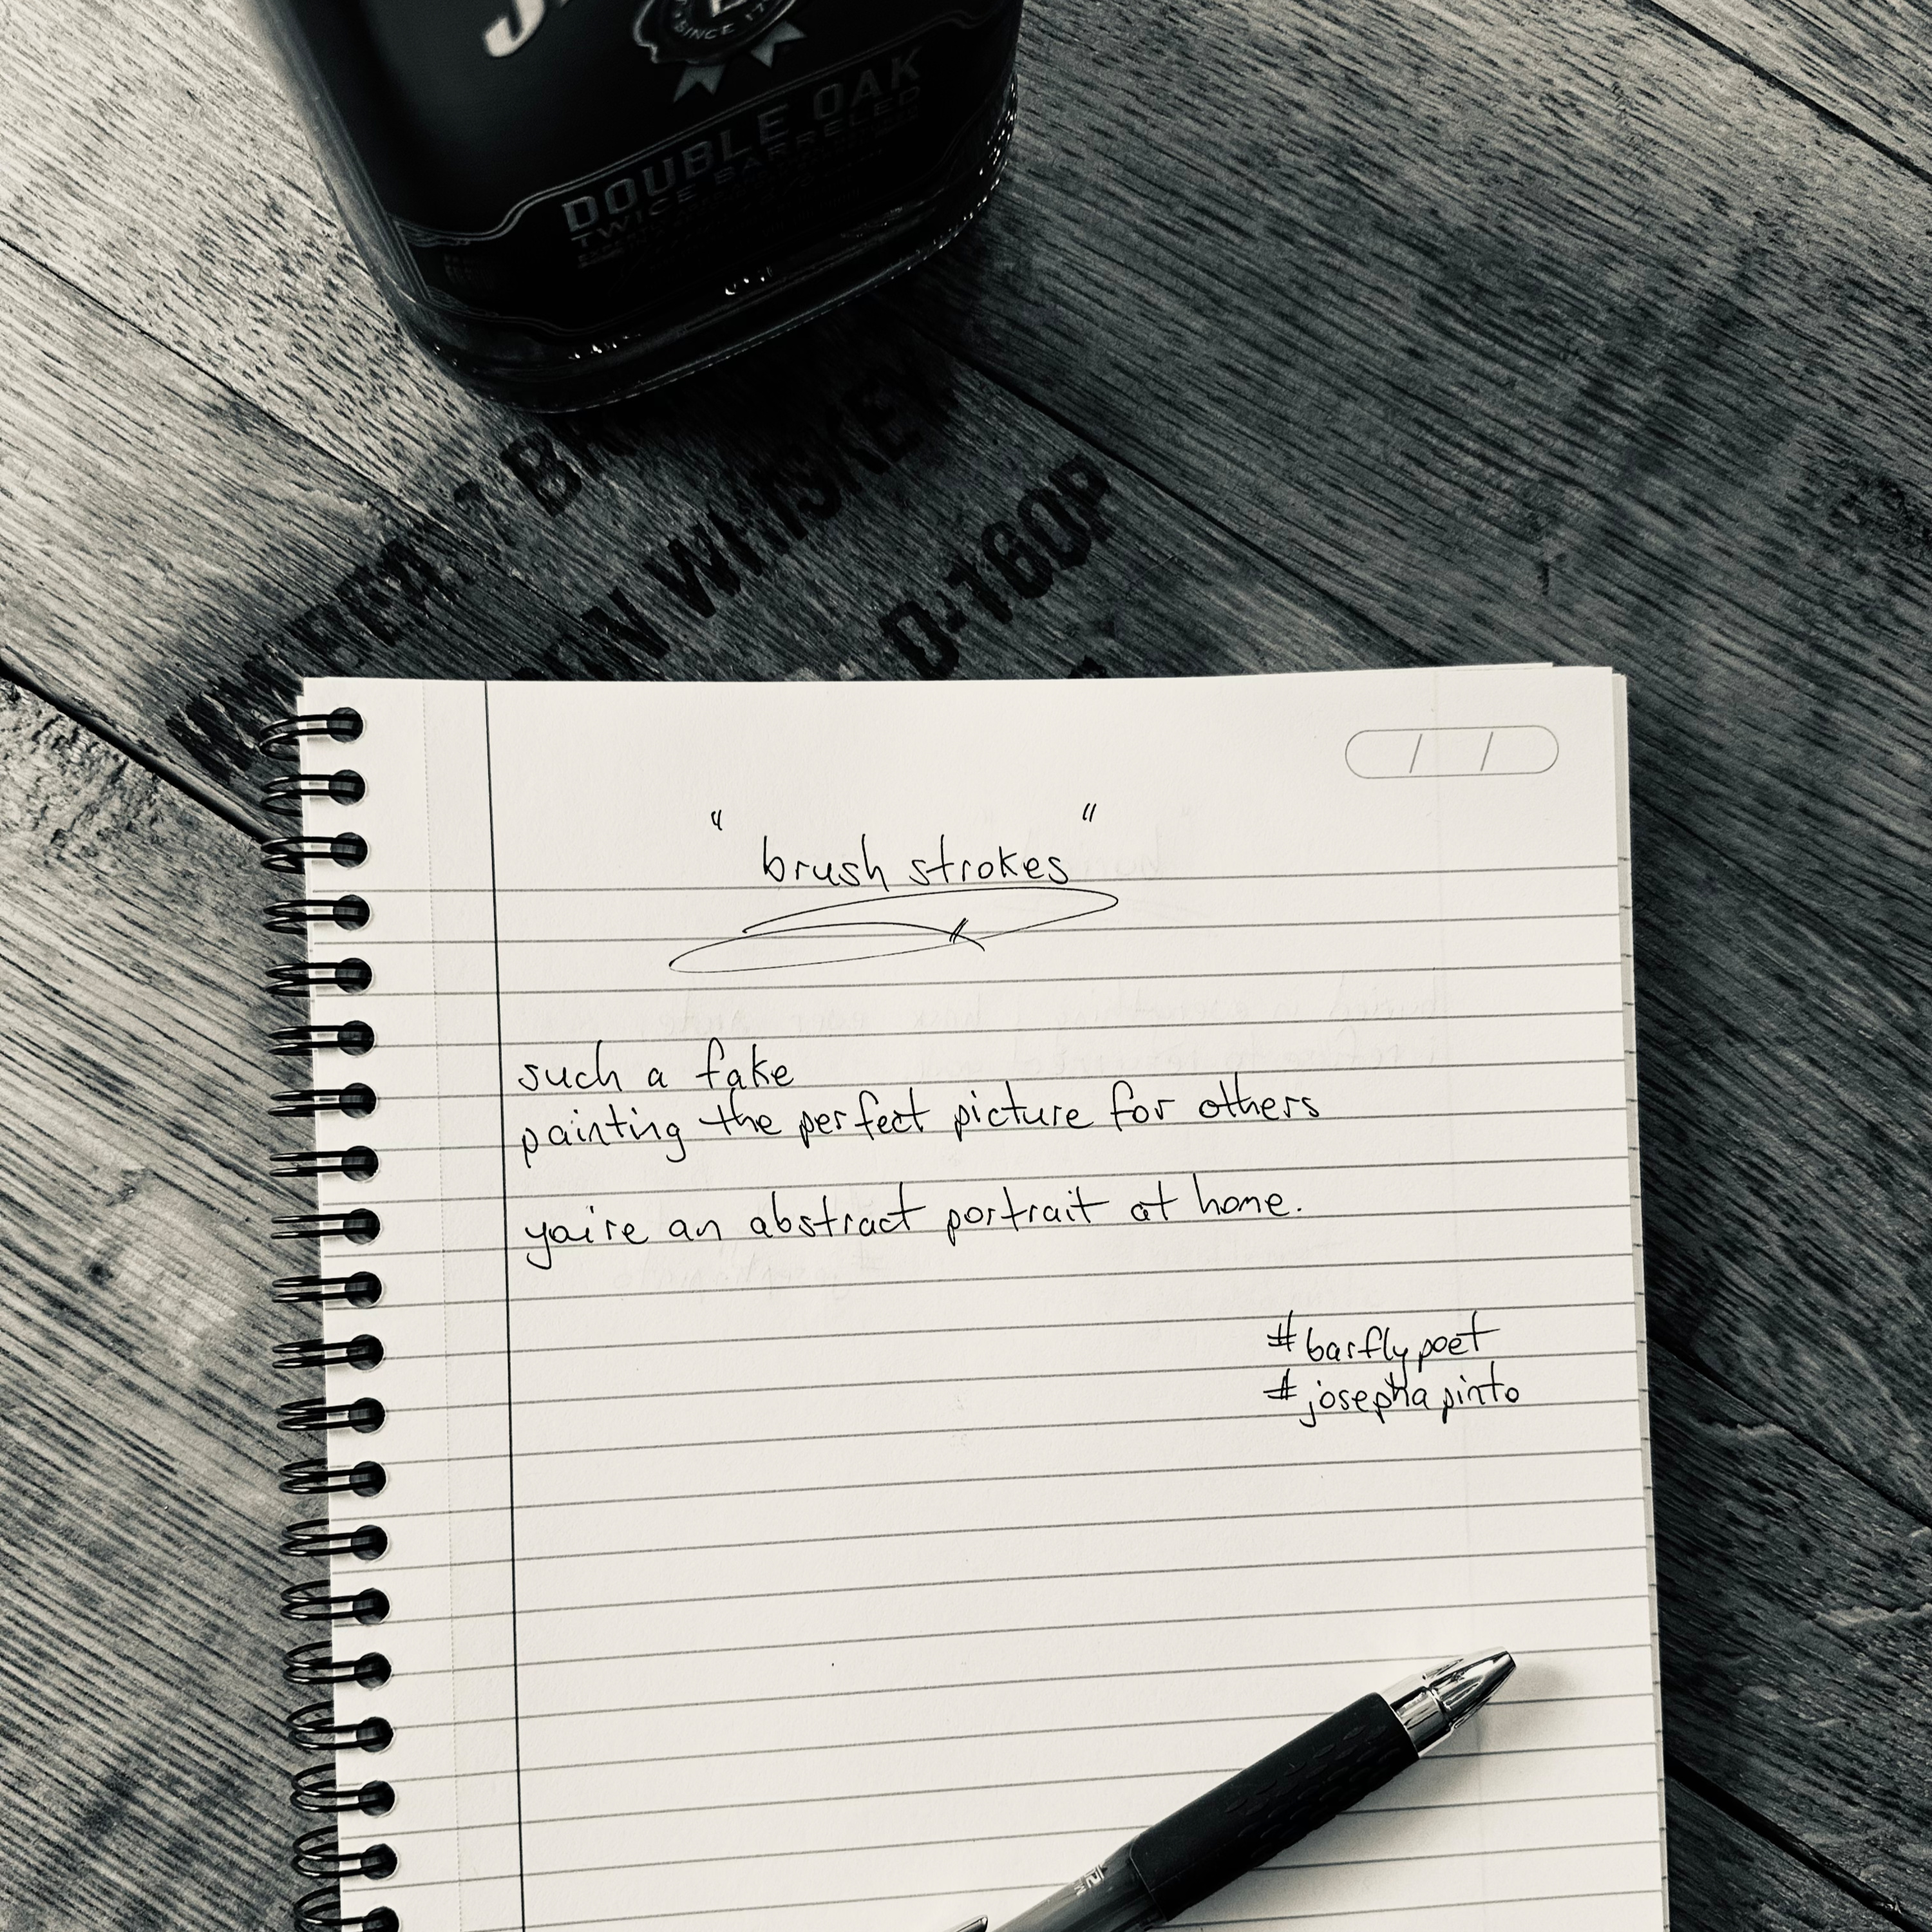 SINCE 17
DOUBLE OAK
TWICE BARRELED
WHISKEY
D-160P
" brush strokes "
such a fake
painting the perfect picture for others
you're an abstract portrait at home.
#barflypoet
#josephapinto